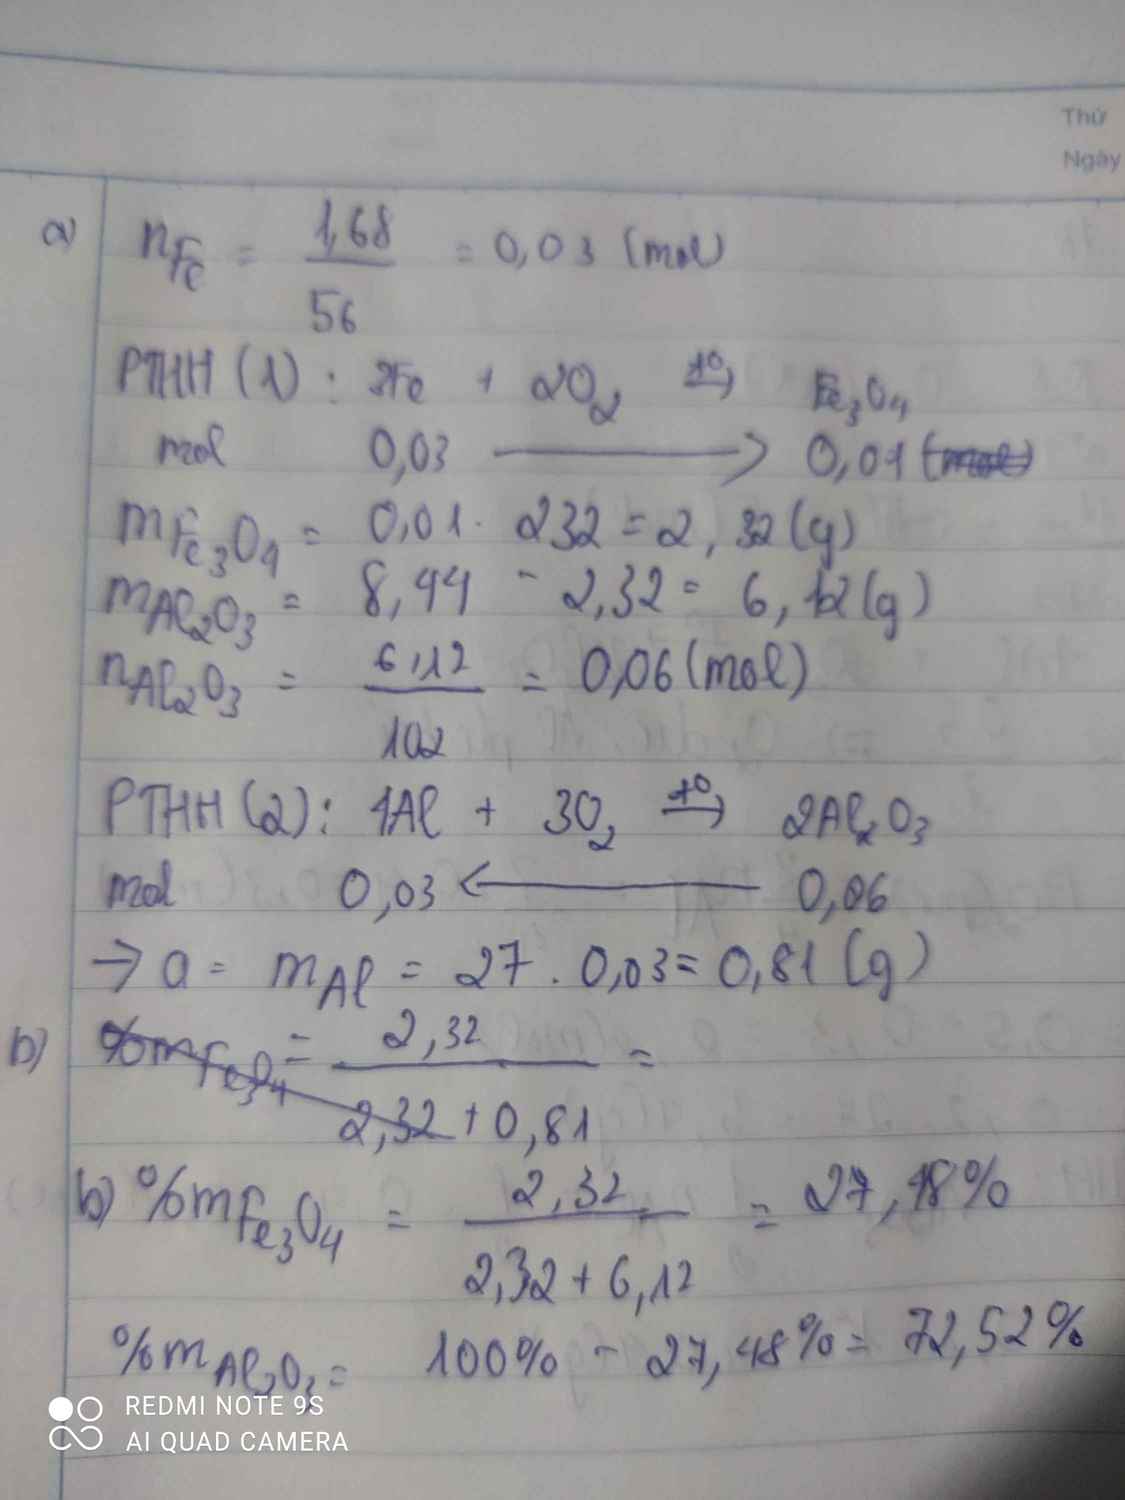 Thứ
Ngày
a) nFe = 1,68 / 56 = 0,03 (mol)
PTHH (1) : 3Fe + 2O2 t0→ Fe3O4
mol 0,03 → 0,01 (mol)
mFe3O4 = 0,01 . 232 = 2,32 (g)
mAl2O3 = 8,44 - 2,32 = 6,12 (g)
nAl2O3 = 6,12 / 102 = 0,06 (mol)
PTHH (2) : 4Al + 3O2 t0→ 2Al2O3
mol 0,03 ← 0,06
→ a = mAl = 27 . 0,03 = 0,81 (g)
b) %mFe3O4 = 2,32 / 2,32 + 0,81 =
b) %mFe3O4 = 2,32 / 2,32 + 6,12 = 27,48%
%mAl2O3 = 100% - 27,48% = 72,52%
REDMI NOTE 9S
AI QUAD CAMERA